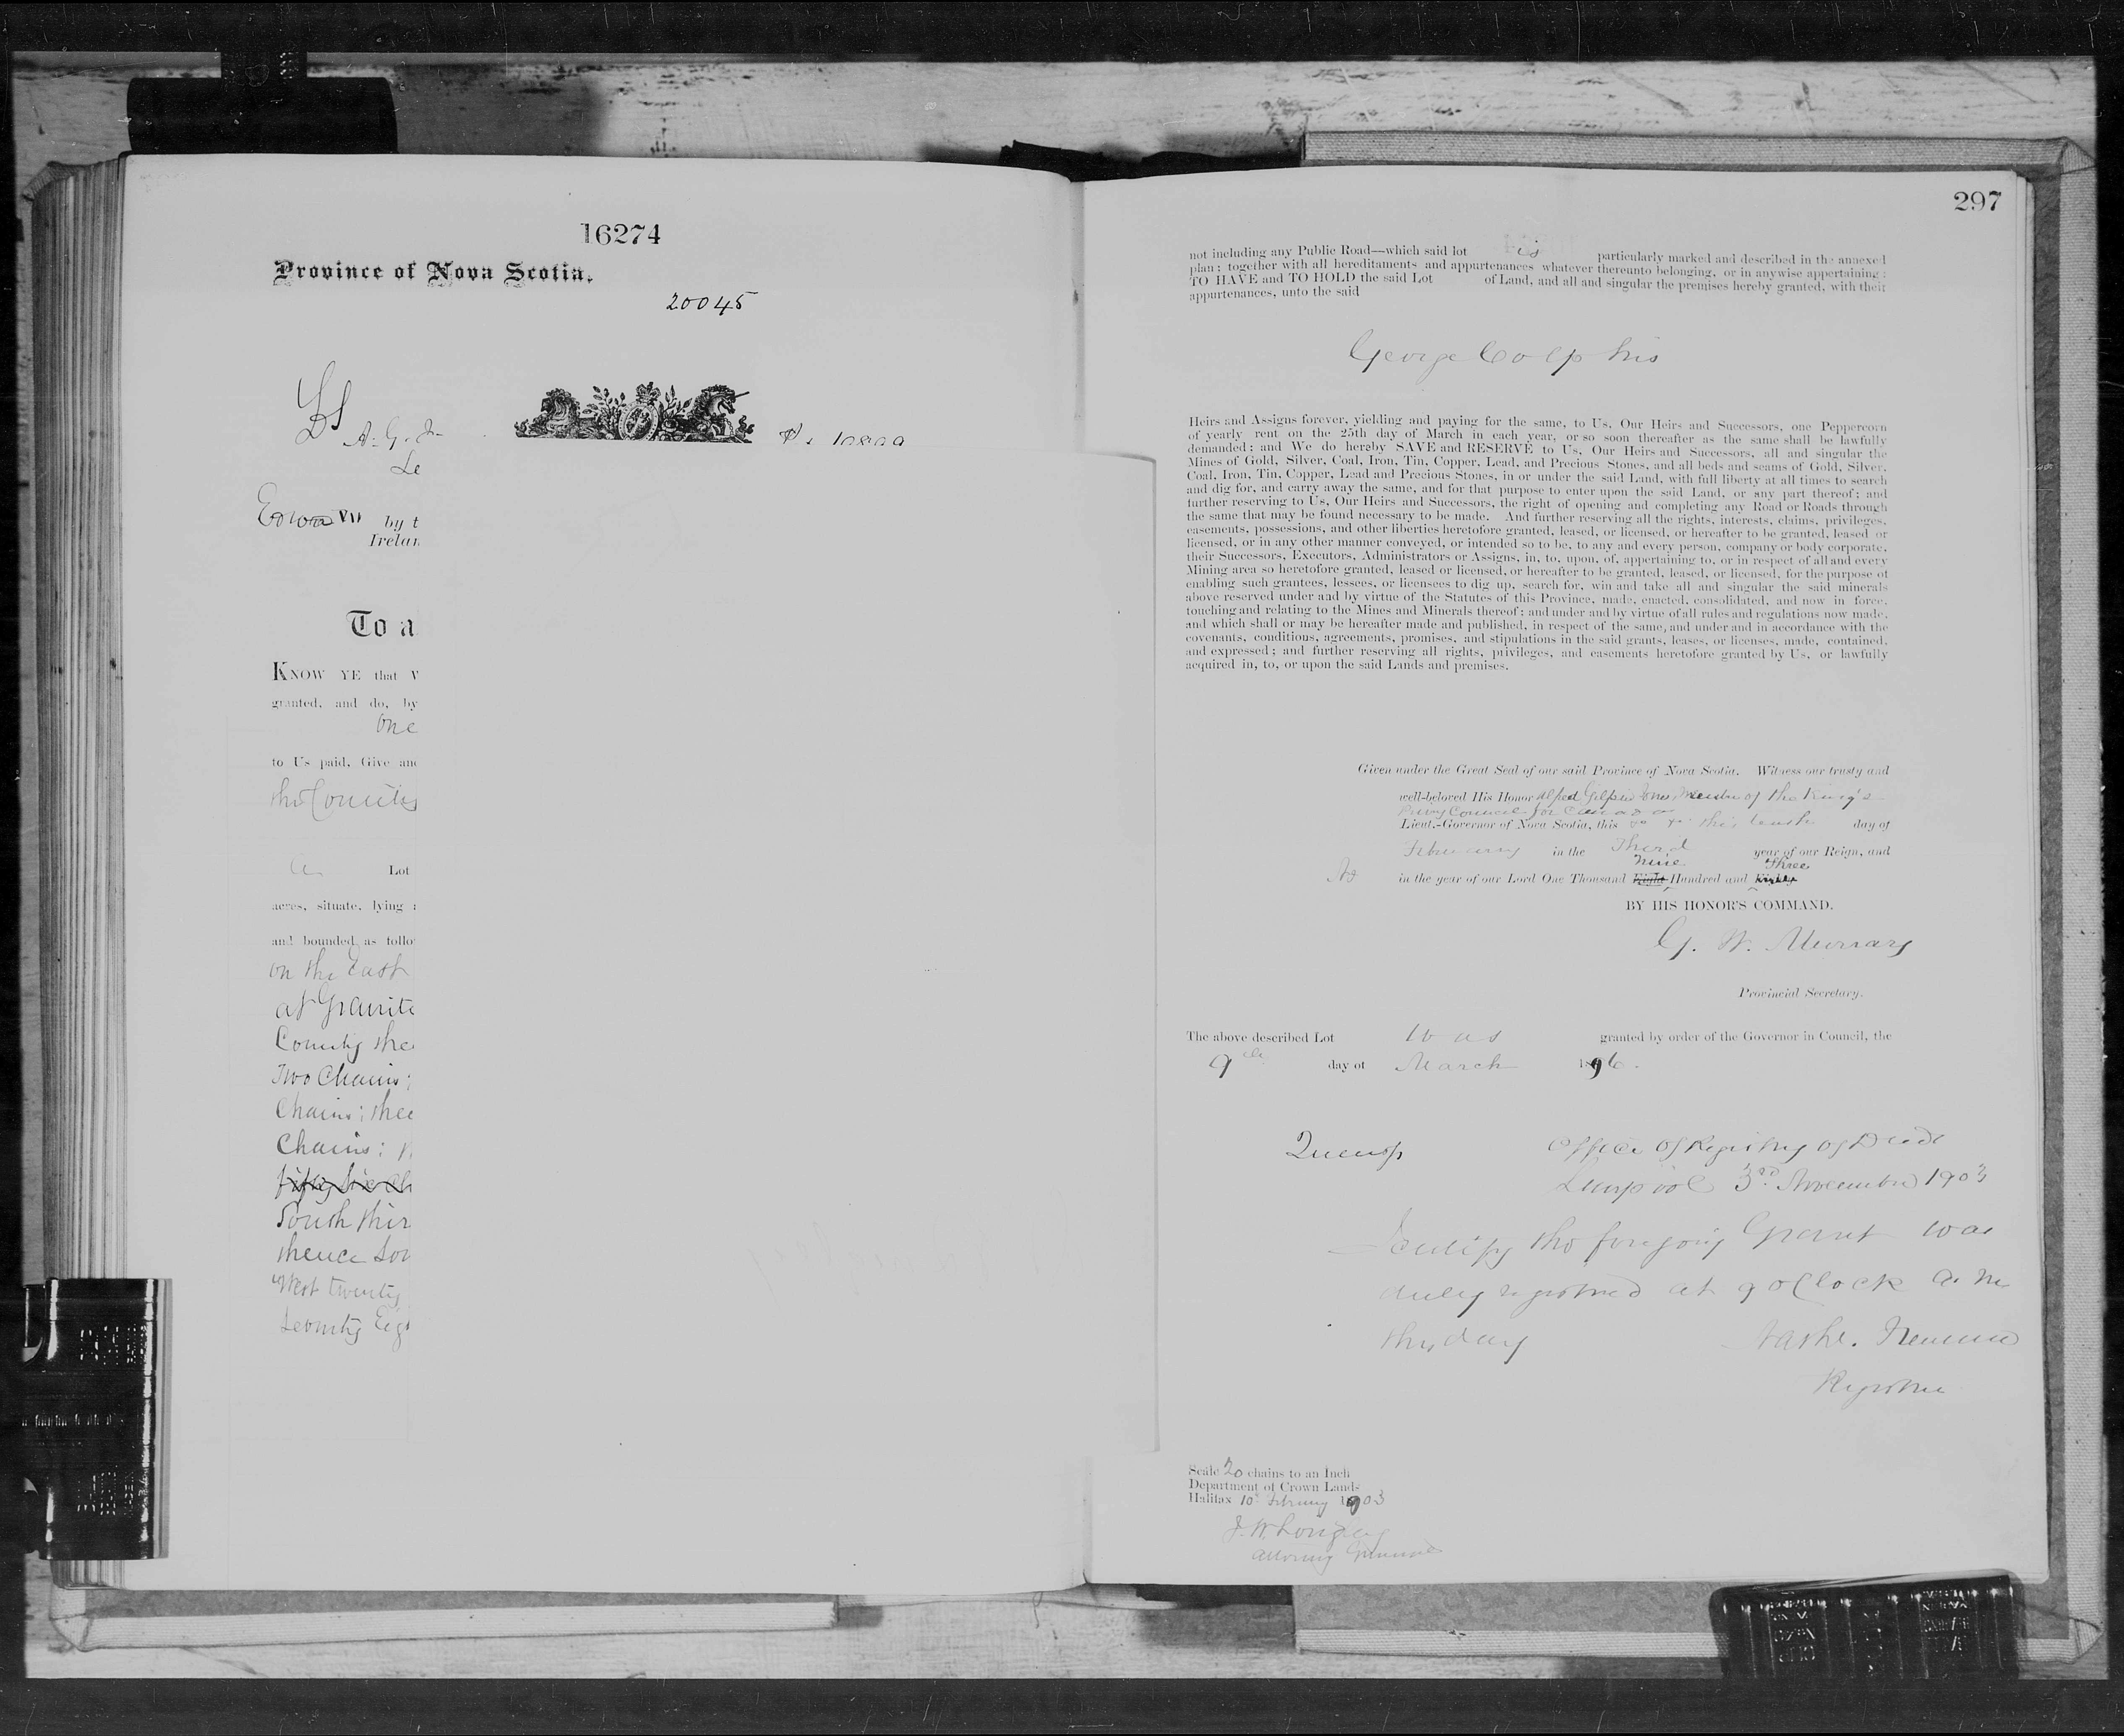 16274
Province of Nova Scotia.
20045
LS
A. G. J
Le
Edward VII by t
Irelan
To a
KNOW YE that W
granted, and do, by
One
to Us paid, Give and
the County
a Lot
acres, situate, lying a
and bounded as follo
on the East
at Granite
County the
Two Chains;
Chains; the
Chains;
South thir
thence Sou
West twenty
Seventy Eig
297
not including any Public Road—which said lot is particularly marked and described in the annexed
plan; together with all hereditaments and appurtenances whatever thereunto belonging, or in anywise appertaining:
TO HAVE and TO HOLD the said Lot of Land, and all and singular the premises hereby granted, with their
appurtenances, unto the said
George Colp his
Heirs and Assigns forever, yielding and paying for the same, to Us, Our Heirs and Successors, one Peppercorn
of yearly rent on the 25th day of March in each year, or so soon thereafter as the same shall be lawfully
demanded; and We do hereby SAVE and RESERVE to Us, Our Heirs and Successors, all and singular the
Mines of Gold, Silver, Coal, Iron, Tin, Copper, Lead, and Precious Stones, and all beds and seams of Gold, Silver,
Coal, Iron, Tin, Copper, Lead and Precious Stones, in or under the said Land, with full liberty at all times to search
and dig for, and carry away the same, and for that purpose to enter upon the said Land, or any part thereof; and
further reserving to Us, Our Heirs and Successors, the right of opening and completing any Road or Roads through
the same that may be found necessary to be made. And further reserving all the rights, interests, claims, privileges,
easements, possessions, and other liberties heretofore granted, leased, or licensed, or hereafter to be granted, leased or
licensed, or in any other manner conveyed, or intended so to be, to any and every person, company or body corporate,
their Successors, Executors, Administrators or Assigns, in, to, upon, of, appertaining to, or in respect of all and every
Mining area so heretofore granted, leased or licensed, or hereafter to be granted, leased, or licensed, for the purpose of
enabling such grantees, lessees, or licensees to dig up, search for, win and take all and singular the said minerals
above reserved under and by virtue of the Statutes of this Province, made, enacted, consolidated, and now in force,
touching and relating to the Mines and Minerals thereof; and under and by virtue of all rules and regulations now made,
and which shall or may be hereafter made and published, in respect of the same, and under and in accordance with the
covenants, conditions, agreements, promises, and stipulations in the said grants, leases, or licenses, made, contained,
and expressed; and further reserving all rights, privileges, and easements heretofore granted by Us, or lawfully
acquired in, to, or upon the said Lands and premises.
Given under the Great Seal of our said Province of Nova Scotia. Witness our trusty and
well-beloved His Honor Alfred Gilpin Jones, Member of the King's
Privy Council for Canada
Lieut.-Governor of Nova Scotia, this &c &c this tenth day of
February in the Third year of our Reign, and
nine Three
in the year of our Lord One Thousand Eight Hundred and Eighty
BY HIS HONOR'S COMMAND.
G. H. Murray
Provincial Secretary.
The above described Lot was granted by order of the Governor in Council, the
9th day of March 1896.
Queens Office of Registry of Deeds
Liverpool 3rd November 1903
I certify the foregoing Grant was
duly registered at 9 oClock a.m
this day
Registrar
Scale 20 chains to an Inch
Department of Crown Lands
Halifax 10th February 1903
J. W. Longley
Attorney General